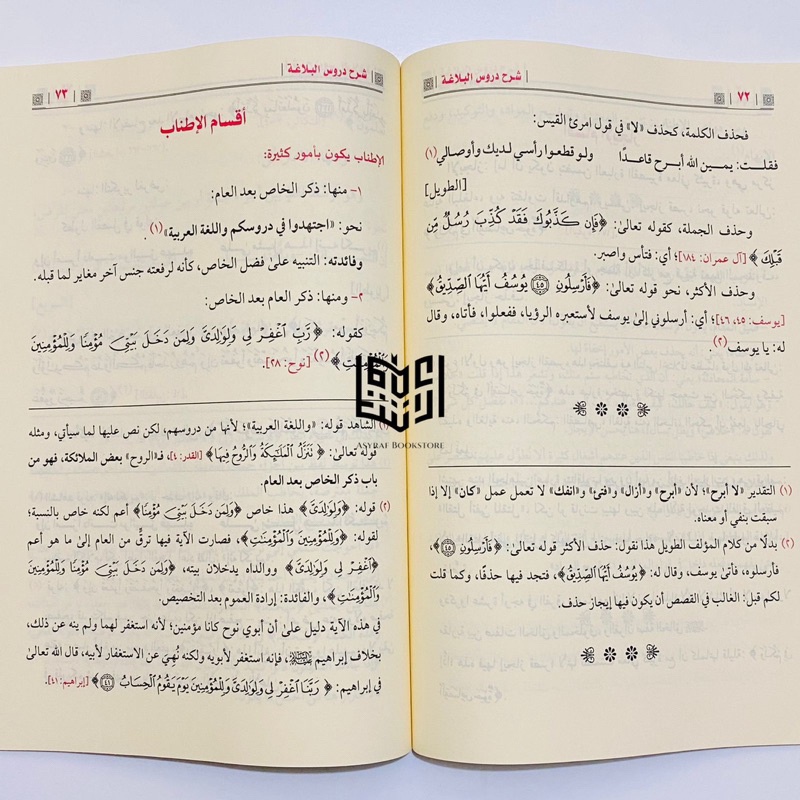 شرح دروس البلاغة
٧٢
فحذف الكلمة، كحذف «لا» في قول امرئ القيس:
فقلت: يمين الله أبرح قاعدًا ولو قطعوا رأسي لديك وأوصالي(١)
[الطويل]
وحذف الجملة، كقوله تعالىٰ: ﴿فَإِن كَذَّبُوكَ فَقَدْ كُذِّبَ رُسُلٌ مِّن
قَبْلِكَ﴾ [آل عمران: ١٨٤]؛ أي: فتأس واصبر.
وحذف الأكثر، نحو قوله تعالىٰ: ﴿فَأَرْسِلُونِ ٤٥ يُوسُفُ أَيُّهَا ٱلصِّدِّيقُ﴾
[يوسف: ٤٥، ٤٦]؛ أي: أرسلوني إلىٰ يوسف لأستعبره الرؤيا، ففعلوا، فأتاه، وقال
له: يا يوسف(٢).
(١) التقدير «لا أبرح»؛ لأن «أبرح» و«أزال» و«فتئ» و«انفك» لا تعمل عمل «كان» إلا إذا
سبقت بنفي أو معناه.
(٢) بدلًا من كلام المؤلف الطويل هذا نقول: حذف الأكثر قوله تعالىٰ: ﴿فَأَرْسِلُونِ ٤٥﴾،
فأرسلوه، فأتىٰ يوسف، وقال له: ﴿يُوسُفُ أَيُّهَا ٱلصِّدِّيقُ﴾، فتجد فيها حذفًا، وكما قلت
لكم قبل: الغالب في القصص أن يكون فيها إيجاز حذف.
شرح دروس البلاغة
٧٣
أقسام الإطناب
الإطناب يكون بأمور كثيرة:
١- منها: ذكر الخاص بعد العام:
نحو: «اجتهدوا في دروسكم واللغة العربية»(١).
وفائدته: التنبيه علىٰ فضل الخاص، كأنه لرفعته جنس آخر مغاير لما قبله.
٢- ومنها: ذكر العام بعد الخاص:
كقوله: ﴿رَّبِّ ٱغْفِرْ لِى وَلِوَٰلِدَىَّ وَلِمَن دَخَلَ بَيْتِىَ مُؤْمِنًا وَلِلْمُؤْمِنِينَ
وَٱلْمُؤْمِنَٰتِ﴾(٢) [نوح: ٢٨].
(١) الشاهد قوله: «واللغة العربية»؛ لأنها من دروسهم، لكن نص عليها لما سيأتي، ومثله
قوله تعالىٰ: ﴿تَنَزَّلُ ٱلْمَلَٰٓئِكَةُ وَٱلرُّوحُ فِيهَا﴾ [القدر: ٤]، فـ«الروح» بعض الملائكة، فهو من
باب ذكر الخاص بعد العام.
(٢) قوله: ﴿وَلِوَٰلِدَىَّ﴾ هذا خاص ﴿وَلِمَن دَخَلَ بَيْتِىَ مُؤْمِنًا﴾ أعم لكنه خاص بالنسبة؛
لقوله: ﴿وَلِلْمُؤْمِنِينَ وَٱلْمُؤْمِنَٰتِ﴾، فصارت الآية فيها ترقٍّ من العام إلىٰ ما هو أعم
﴿ٱغْفِرْ لِى وَلِوَٰلِدَىَّ﴾ ووالداه يدخلان بيته، ﴿وَلِمَن دَخَلَ بَيْتِىَ مُؤْمِنًا وَلِلْمُؤْمِنِينَ
وَٱلْمُؤْمِنَٰتِ﴾، والفائدة: إرادة العموم بعد التخصيص.
في هذه الآية دليل علىٰ أن أبوي نوح كانا مؤمنين؛ لأنه استغفر لهما ولم ينه عن ذلك،
بخلاف إبراهيم ﷺ، فإنه استغفر لأبويه ولكنه نُهِيَ عن الاستغفار لأبيه، قال الله تعالىٰ
في إبراهيم: ﴿رَبَّنَا ٱغْفِرْ لِى وَلِوَٰلِدَىَّ وَلِلْمُؤْمِنِينَ يَوْمَ يَقُومُ ٱلْحِسَابُ ٤١﴾ [إبراهيم: ٤١].
ASYRAF BOOKSTORE